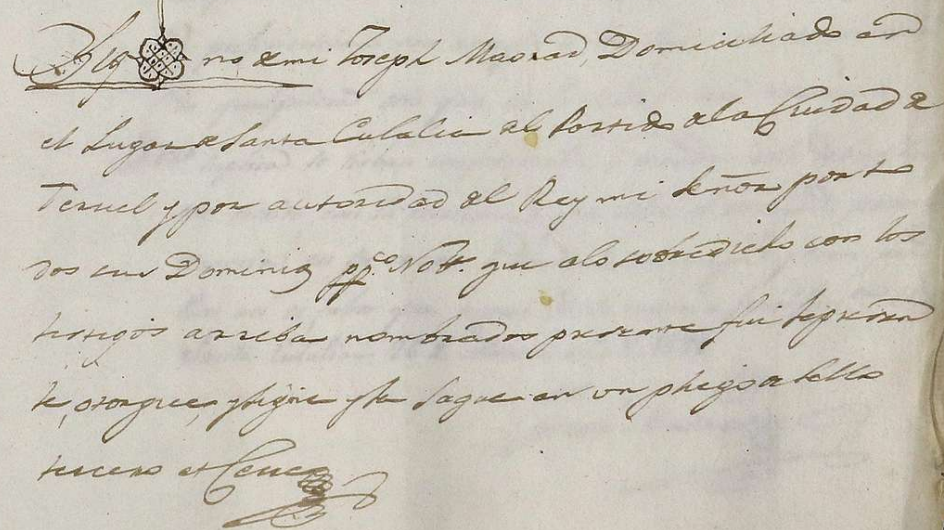 Sig no de mi Joseph Domiciliado en
el Lugar de Santa Eulalia del Partido de la Ciudad de
Teruel y por autoridad del Rey mi Señor por to
dos sus Dominios pp.co Nott.o que alo sobredicho con los
testigos arreba nombrados presente fui
te, otorgue, y signe y la saque en un pliego de sello
tercero et Cerre